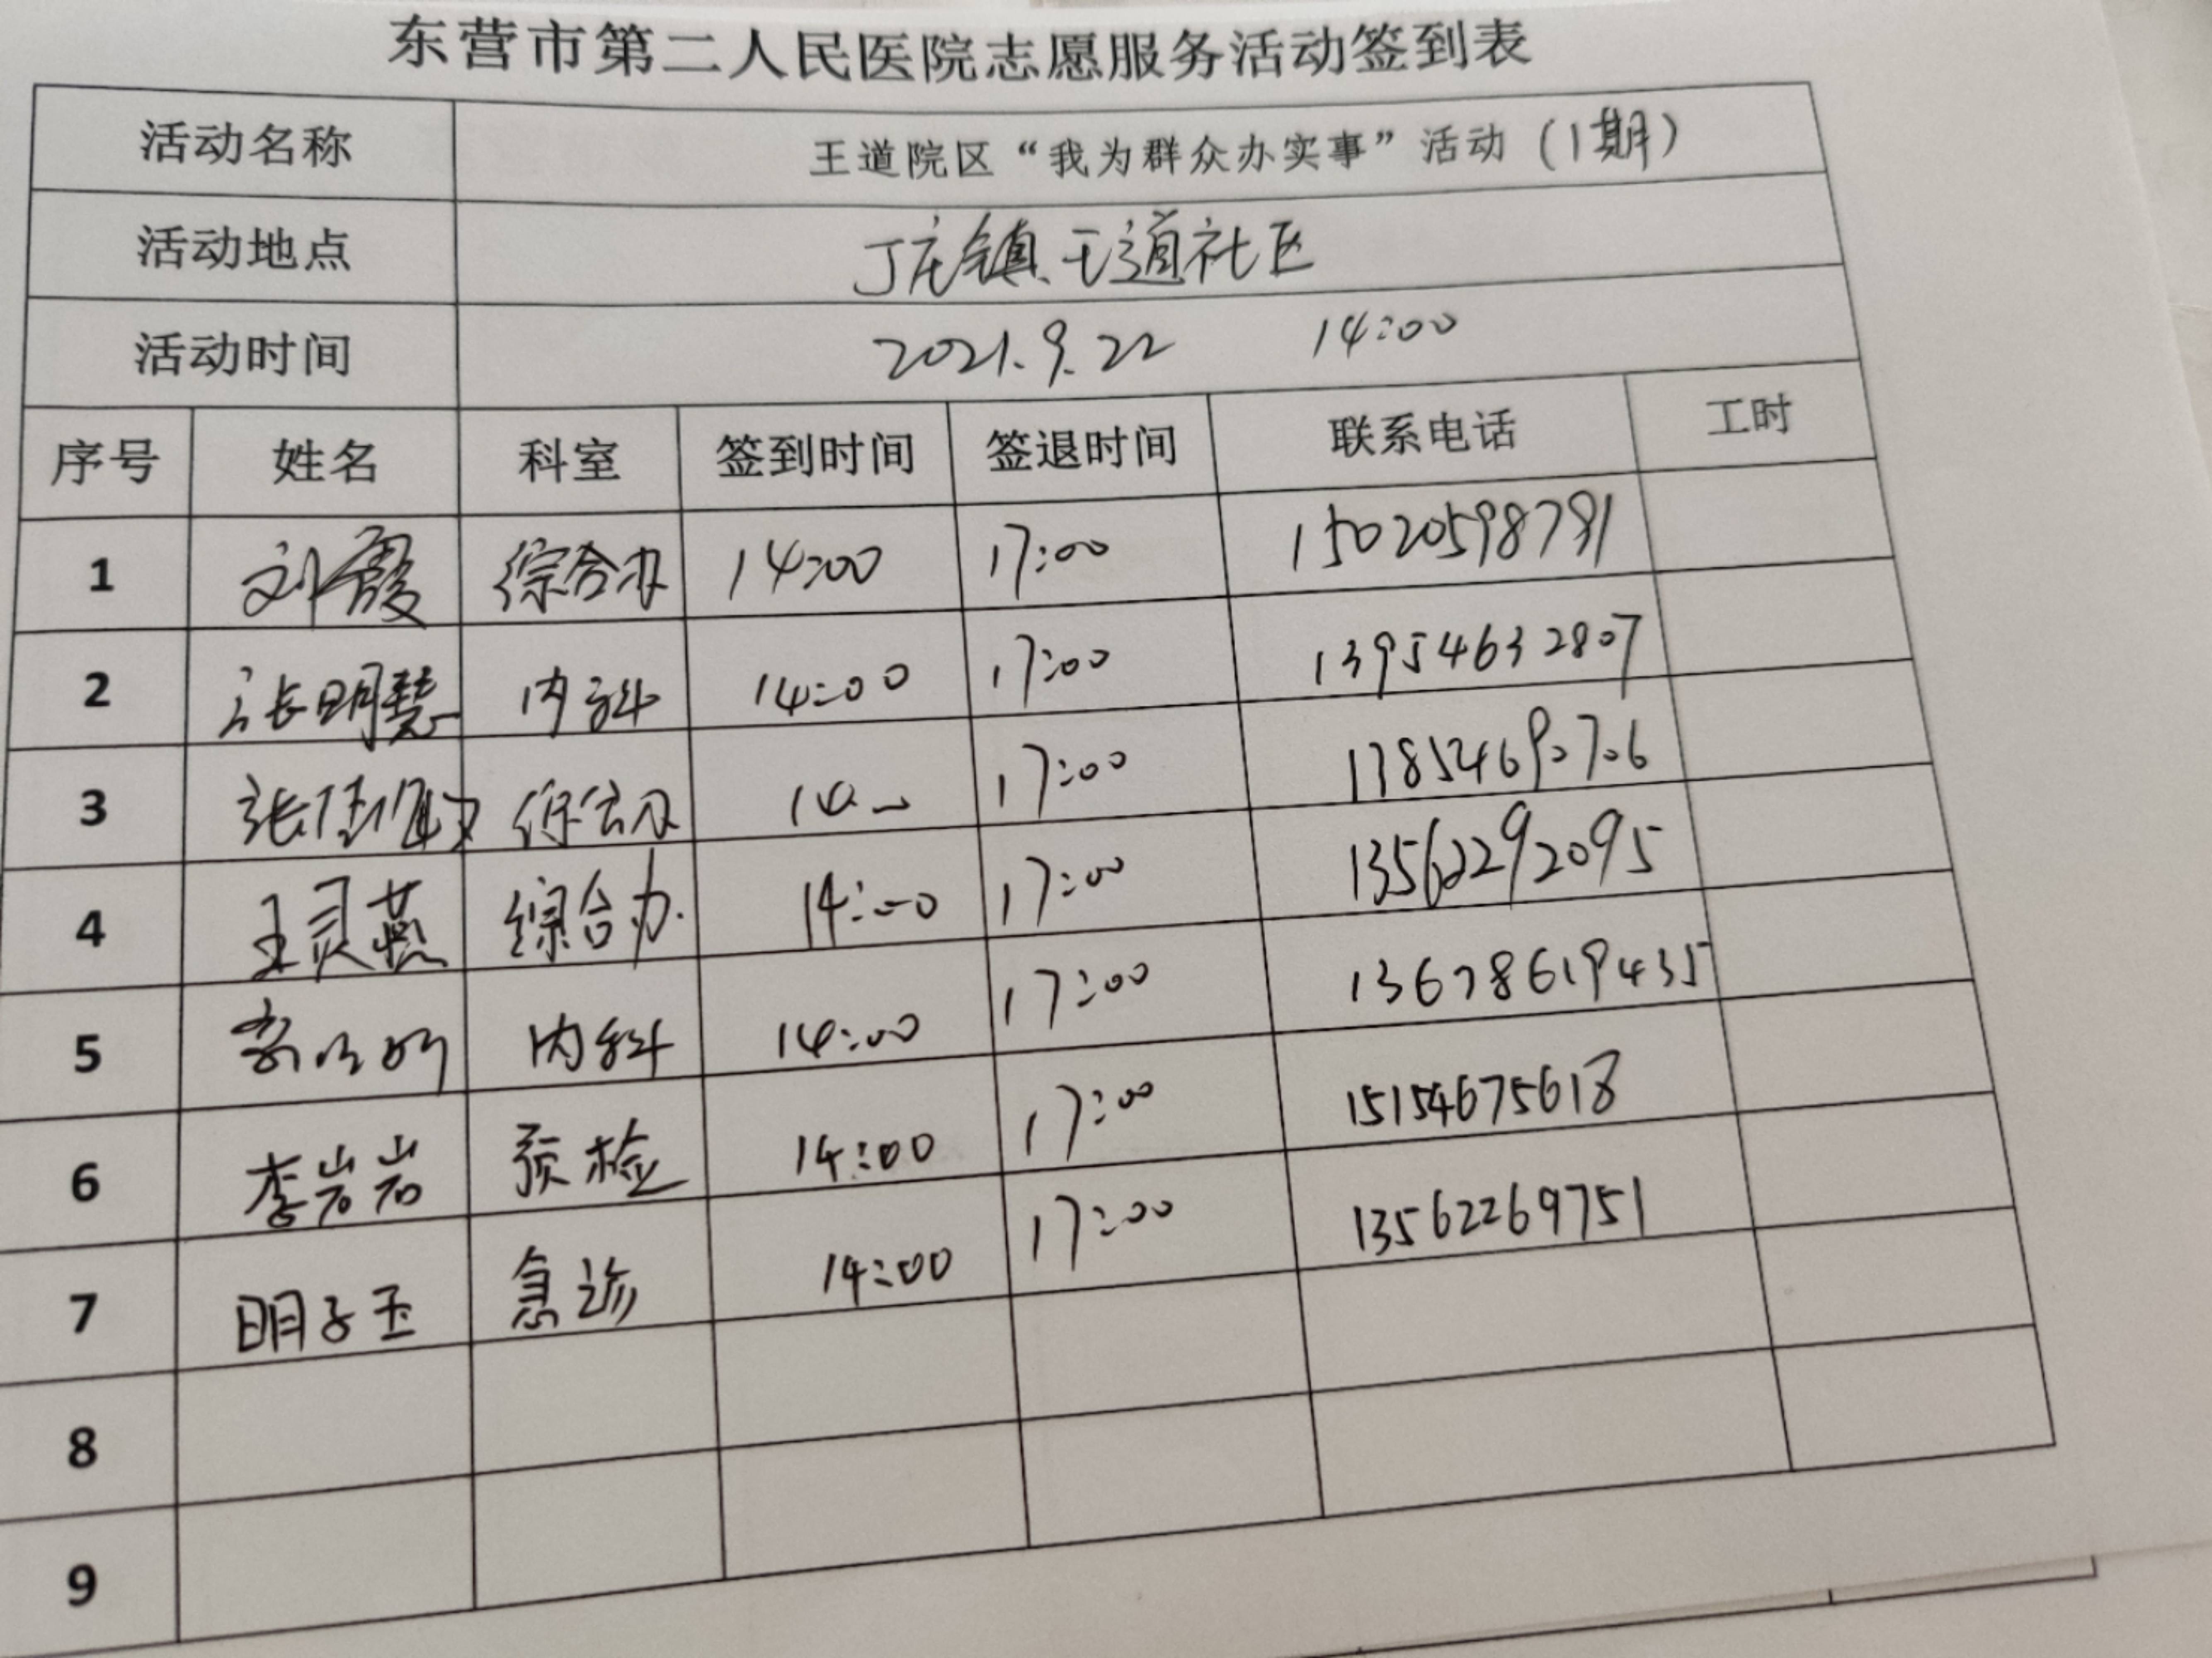 东营市第二人民医院志愿服务活动签到表
活动名称 王道院区“我为群众办实事”活动（1期）
活动地点 丁庄镇王道社区
活动时间 2021.9.22 14:00
序号 姓名 科室 签到时间 签退时间 联系电话 工时
1 刘霞 综合办 14:00 17:00 15020598791
2 张明慧 内科 14:00 17:00 13954632807
3 综合办 17:00 178524690706
4 王灵燕 综合办 14:00 17:00 13562292095
5 内科 14:00 17:00 13678619435
6 李岩岩 预检 14:00 17:00 15154675618
7 明子玉 急诊 14:00 17:00 13562269751
8
9